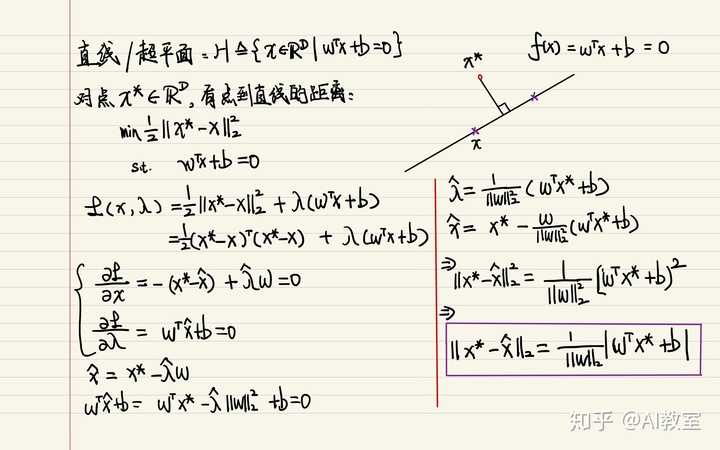 直线/超平面:H≜{x∈ℝᴰ|wᵀx+b=0}
对点x*∈ℝᴰ,有点到直线的距离:
min ½‖x*-x‖₂²
s.t. wᵀx+b=0
ℒ(x,λ)=½‖x*-x‖₂²+λ(wᵀx+b)
=½(x*-x)ᵀ(x*-x)+λ(wᵀx+b)
{ ∂ℒ/∂x=-(x*-x̂)+λ̂w=0
∂ℒ/∂λ=wᵀx̂+b=0
x̂=x*-λ̂w
wᵀx̂+b=wᵀx*-λ̂‖w‖₂²+b=0
f(x)=wᵀx+b=0
x*
x
λ̂=1/‖w‖₂²(wᵀx*+b)
x̂=x*-w/‖w‖₂²(wᵀx*+b)
⇒‖x*-x̂‖₂²=1/‖w‖₂²[wᵀx*+b]²
⇒
‖x*-x̂‖₂=1/‖w‖₂|wᵀx*+b|
知乎 @AI教室